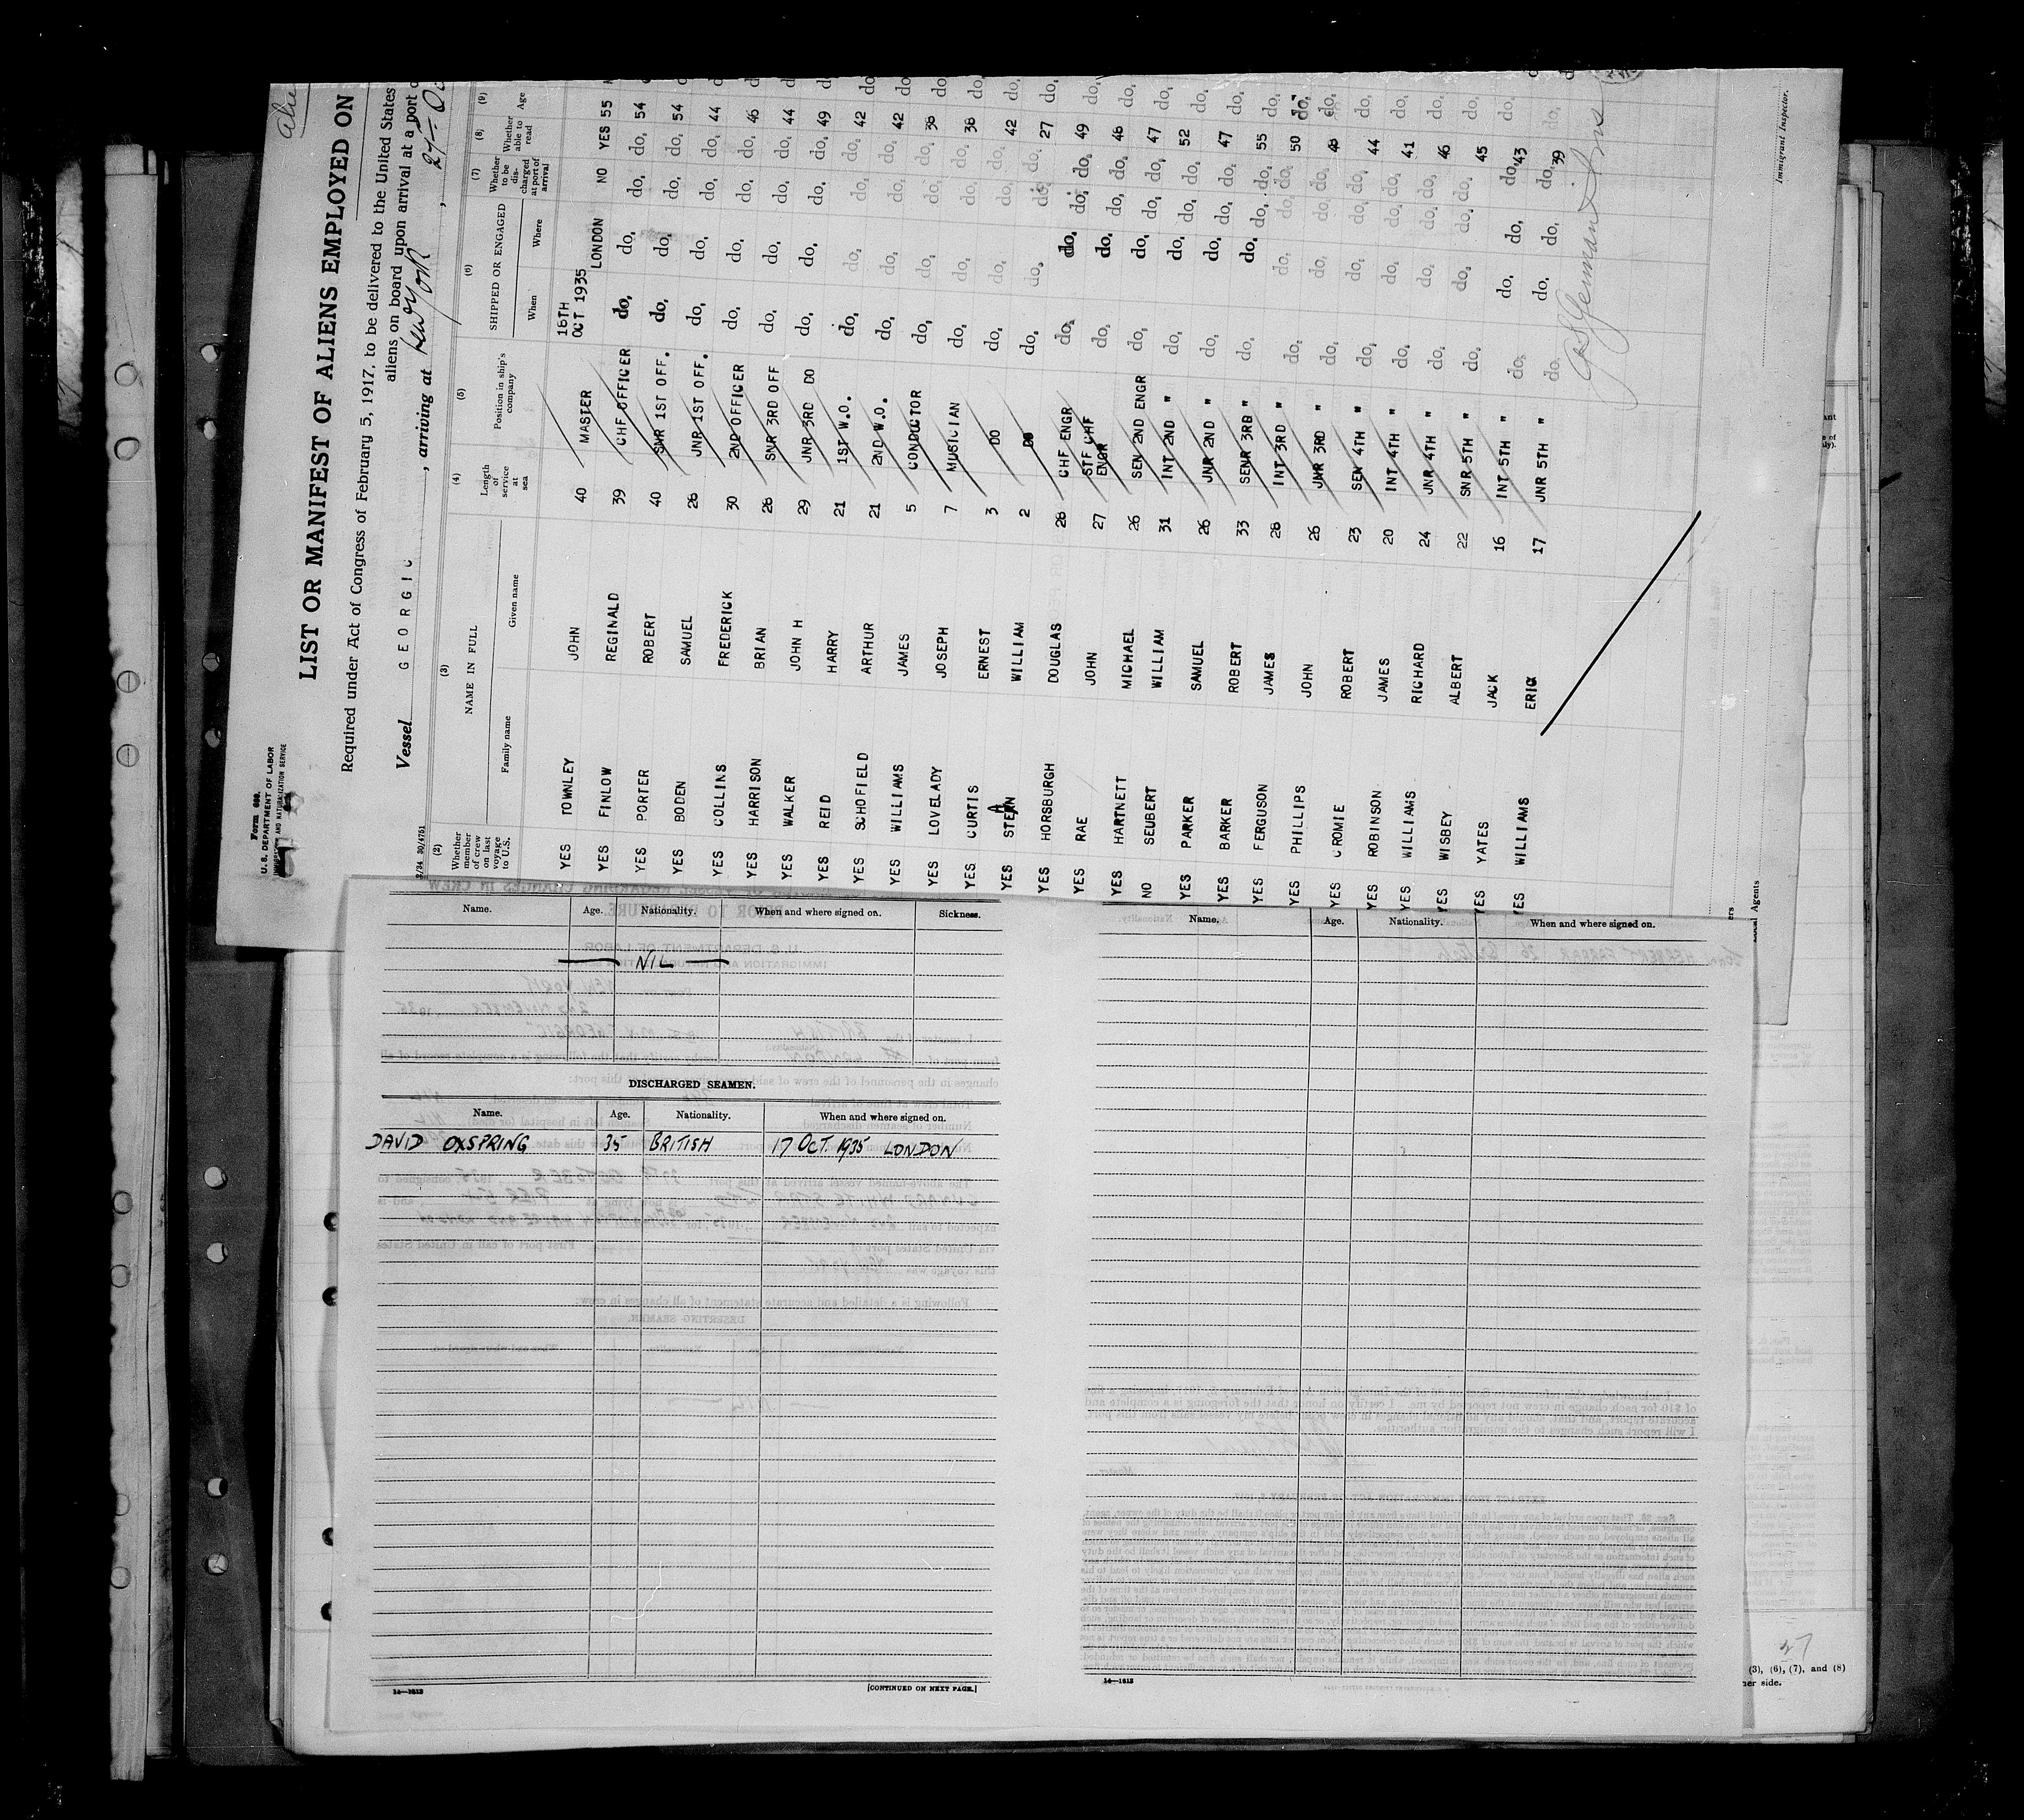 Form 689.
U. S. DEPARTMENT OF LABOR
IMMIGRATION AND NATURALIZATION SERVICE
LIST OR MANIFEST OF ALIENS EMPLOYED ON
Required under Act of Congress of February 5, 1917, to be delivered to the United States
aliens on board upon arrival at a port
Vessel GEORGIC, arriving at New York, 27
(2) (3) (4) (5) (6) (7) (8) (9)
Whether member of crew on last voyage to U.S. NAME IN FULL Length of service at sea Position in ship's company SHIPPED OR ENGAGED Whether to be discharged at port of arrival Whether able to read Age
Family name Given name When Where
YES TOWNLEY JOHN 40 MASTER 16TH OCT 1935 LONDON NO YES 55
YES FINLOW REGINALD 39 CHF OFFICER do. do. do. do. 54 do.
YES PORTER ROBERT 40 SNR 1ST OFF. do. do. do. do. 54 do.
YES BODEN SAMUEL 26 JNR 1ST OFF. do. do. do. do. 44 do.
YES COLLINS FREDERICK 30 2ND OFFICER do. do. do. do. 46 do.
YES HARRISON BRIAN 26 SNR 3RD OFF do. do. do. do. 44 do.
YES WALKER JOHN H 29 JNR 3RD DO do. do. do. do. 49 do.
YES REID HARRY 21 1ST W.O. do. do. do. do. 42 do.
YES SCHOFIELD ARTHUR 21 2ND W.O. do. do. do. do. 42 do.
YES WILLIAMS JAMES 5 CONDUCTOR do. do. do. do. 38 do.
YES LOVELADY JOSEPH 7 MUSICIAN do. do. do. do. 38 do.
YES CURTIS ERNEST 3 DO do. do. do. do. 42 do.
YES STEAN WILLIAM 2 DO do. do. do. do. 27 do.
YES HORSBURGH DOUGLAS 28 CHF ENGR do. do. do. do. 49 do.
YES RAE JOHN 27 STF CHF ENGR do. do. do. do. 46 do.
YES HARTNETT MICHAEL 26 SEN 2ND ENGR do. do. do. do. 47 do.
NO SEUBERT WILLIAM 31 INT 2ND " do. do. do. do. 52 do.
YES PARKER SAMUEL 26 JNR 2ND " do. do. do. do. 47 do.
YES BARKER ROBERT 33 SENR 3RD " do. do. do. do. 55 do.
YES FERGUSON JAMES 28 INT 3RD " do. do. do. do. 50 do.
YES PHILLIPS JOHN 26 JNR 3RD " do. do. do. do. 48 do.
YES CROMIE ROBERT 23 SEN 4TH " do. do. do. do. 44 do.
YES ROBINSON JAMES 20 INT 4TH " do. do. do. do. 41 do.
YES WILLIAMS RICHARD 24 JNR 4TH " do. do. do. do. 46 do.
YES WISBEY ALBERT 22 SNR 5TH " do. do. do. do. 45 do.
YES YATES JACK 16 INT 5TH " do. do. do. 43 do.
YES WILLIAMS ERIC 17 JNR 5TH " do. do. do. 39 do.
Immigrant Inspector.
Name. Age. Nationality. When and where signed on. Sickness.
NIL
DISCHARGED SEAMEN.
Name. Age. Nationality. When and where signed on.
DAVID OXSPRING 35 BRITISH 17 OCT. 1935 LONDON
14—1613
[CONTINUED ON NEXT PAGE.]
Name. Age. Nationality. When and where signed on.
14—1613
(3), (6), (7), and (8)
her side.